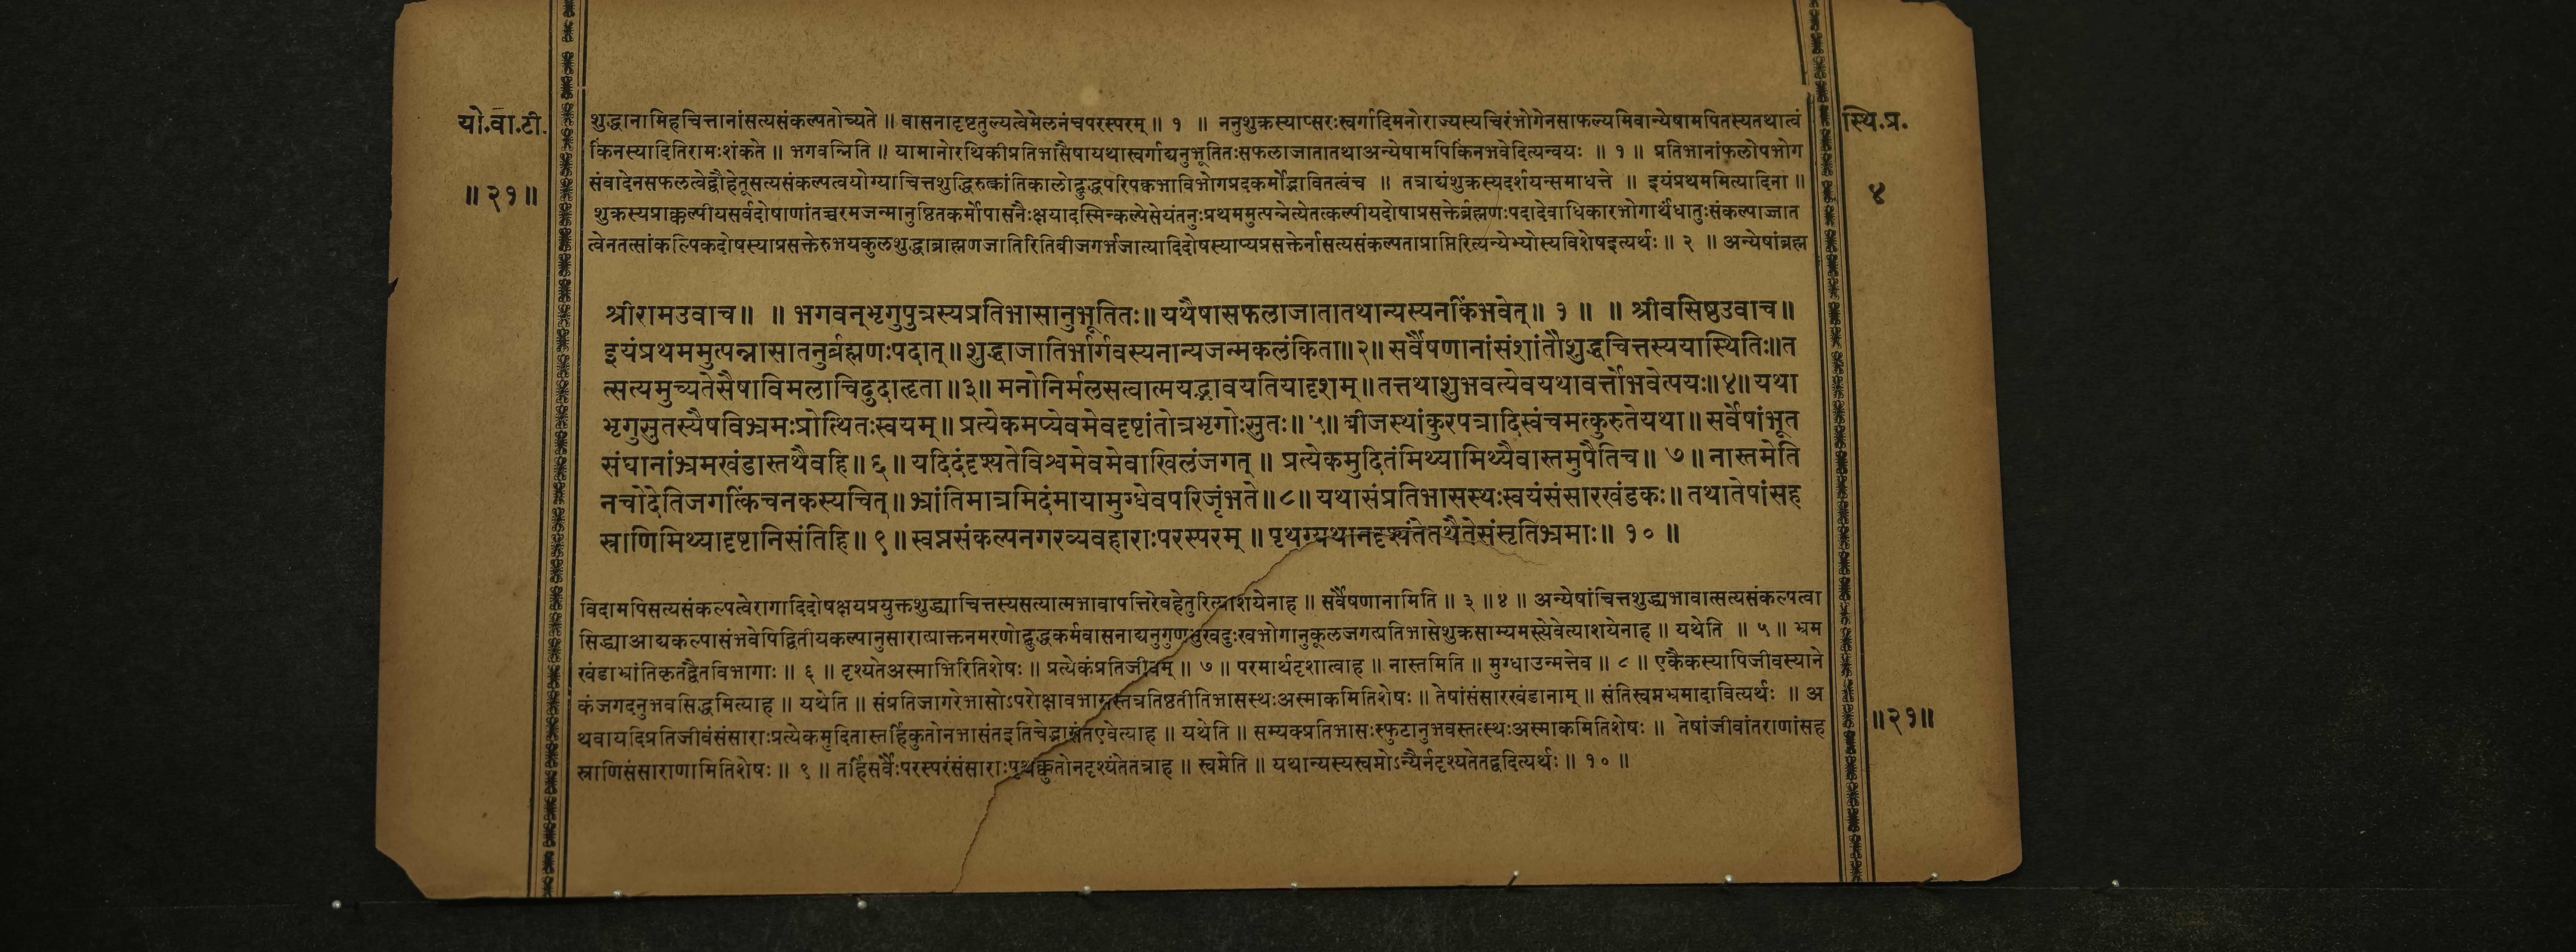 यो.वा.टी.
॥२१॥
शुद्धानामिहचित्तानांसत्यसंकल्पतोच्यते ॥ वासनादृष्टतुल्यत्वेमेलनंचपरस्परम् ॥ १ ॥ ननुशुक्रस्याप्सरःस्वर्गादिमनोराज्यस्यचिरंभोगेनसाफल्यमिवान्येषामपितस्यतथात्वं
किंनस्यादितिरामःशंकते ॥ भगवन्निति ॥ यामानोरथिकीप्रतिभासैषायथास्वर्गाद्यनुभूतितःसफलाजातातथाअन्येषामपिकिंनभवेदित्यन्वयः ॥ १ ॥ प्रतिभानांफलोपभोग
संवादेनसफलत्वेद्वौहेतूसत्यसंकल्पत्वयोग्याचित्तशुद्धिरुत्क्रांतिकालोद्बुद्धपरिपक्वभाविभोगप्रदकर्मोद्भावितत्वंच ॥ तत्राद्यंशुक्रस्यदर्शयन्समाधत्ते ॥ इयंप्रथममित्यादिना ॥
शुक्रस्यप्राक्कल्पीयसर्वदोषाणांतच्चरमजन्मानुष्ठितकर्मोपासनैःक्षयादस्मिन्कल्पेसेयंतनुःप्रथममुत्पन्नेत्येतत्कल्पीयदोषाप्रसक्तेर्ब्रह्मणःपदादेवाधिकारभोगार्थंधातुःसंकल्पाज्जात
त्वेनतत्सांकल्पिकदोषस्याप्रसक्तेरुभयकुलशुद्धाब्राह्मणजातिरितिबीजगर्भजात्यादिदोषस्याप्यप्रसक्तेर्नासत्यसंकल्पताप्राप्तिरित्यन्येभ्योस्यविशेषइत्यर्थः ॥ २ ॥ अन्येषांब्रह्म
श्रीरामउवाच॥ ॥ भगवन्भृगुपुत्रस्यप्रतिभासानुभूतितः॥ यथैषासफलाजातातथान्यस्यनकिंभवेत्॥ १ ॥ ॥ श्रीवसिष्ठउवाच॥
इयंप्रथममुत्पन्नासातनुर्ब्रह्मणःपदात्॥ शुद्धाजातिर्भार्गवस्यनान्यजन्मकलंकिता॥२॥ सर्वैषणानांसंशांतौशुद्धचित्तस्ययास्थितिः॥त
त्सत्यमुच्यतेसैषाविमलाचिदुदाहृता॥३॥ मनोनिर्मलसत्वात्मयद्भावयतियादृशम्॥ तत्तथाशुभवत्येवयथावर्त्तोभवेत्पयः॥४॥ यथा
भृगुसुतस्यैषविभ्रमःप्रोत्थितःस्वयम्॥ प्रत्येकमप्येवमेवदृष्टांतोत्रभृगोःसुतः॥ ५॥ बीजस्थांकुरपत्रादिस्वंचमत्कुरुतेयथा॥ सर्वेषांभूत
संघानांभ्रमखंडास्तथैवहि॥ ६॥ यदिदंदृश्यतेविश्वमेवमेवाखिलंजगत् ॥ प्रत्येकमुदितंमिथ्यामिथ्यैवास्तमुपैतिच॥ ७॥ नास्तमेति
नचोदेतिजगत्किंचनकस्यचित्॥ भ्रांतिमात्रमिदंमायामुग्धेवपरिजृंभते॥८॥ यथासंप्रतिभासस्थःस्वयंसंसारखंडकः॥ तथातेषांसह
स्राणिमिथ्यादृष्टानिसंतिहि॥ ९॥ स्वप्नसंकल्पनगरव्यवहाराःपरस्परम् ॥ पृथग्यथानदृश्यंतेतथैतेसंसृतिभ्रमाः॥ १० ॥
विदामपिसत्यसंकल्पत्वेरागादिदोषक्षयप्रयुक्तशुद्ध्याचित्तस्यसत्यात्मभावापत्तिरेवहेतुरित्याशयेनाह ॥ सर्वैषणानामिति ॥ ३ ॥४ ॥ अन्येषांचित्तशुद्ध्यभावात्सत्यसंकल्पत्वा
सिद्ध्याआद्यकल्पासंभवेपिद्वितीयकल्पानुसारात्प्राक्तनमरणोद्बुद्धकर्मवासनाद्यनुगुणसुखदुःखभोगानुकूलजगत्प्रतिभासेशुक्रसाम्यमस्त्येवेत्याशयेनाह ॥ यथेति ॥ ५ ॥ भ्रम
खंडाभ्रांतिकृतद्वैतविभागाः ॥ ६ ॥ दृश्यतेअस्माभिरितिशेषः ॥ प्रत्येकंप्रतिजीवम् ॥ ७ ॥ परमार्थदृशात्वाह ॥ नास्तमिति ॥ मुग्धाउन्मत्तेव ॥ ८ ॥ एकैकस्यापिजीवस्याने
कंजगदनुभवसिद्धमित्याह ॥ यथेति ॥ संप्रतिजागरेभासोऽपरोक्षावभासस्तत्रतिष्ठतीतिभासस्थःअस्माकमितिशेषः ॥ तेषांसंसारखंडानाम् ॥ संतिस्वप्नभ्रमादावित्यर्थः ॥ अ
थवायदिप्रतिजीवंसंसाराःप्रत्येकमुदितास्तर्हिकुतोनभासंतइतिचेद्भासंतएवेत्याह ॥ यथेति ॥ सम्यक्प्रतिभासःस्फुटानुभवस्तत्स्थःअस्माकमितिशेषः ॥ तेषांजीवांतराणांसह
स्राणिसंसाराणामितिशेषः ॥ ९ ॥ तर्हिसर्वैःपरस्परंसंसाराःपृथक्कुतोनदृश्यंतेतत्राह ॥ स्वप्नेति ॥ यथान्यस्यस्वप्नोऽन्यैर्नदृश्यतेतद्वदित्यर्थः ॥ १० ॥
स्थि.प्र.
४
॥२१॥